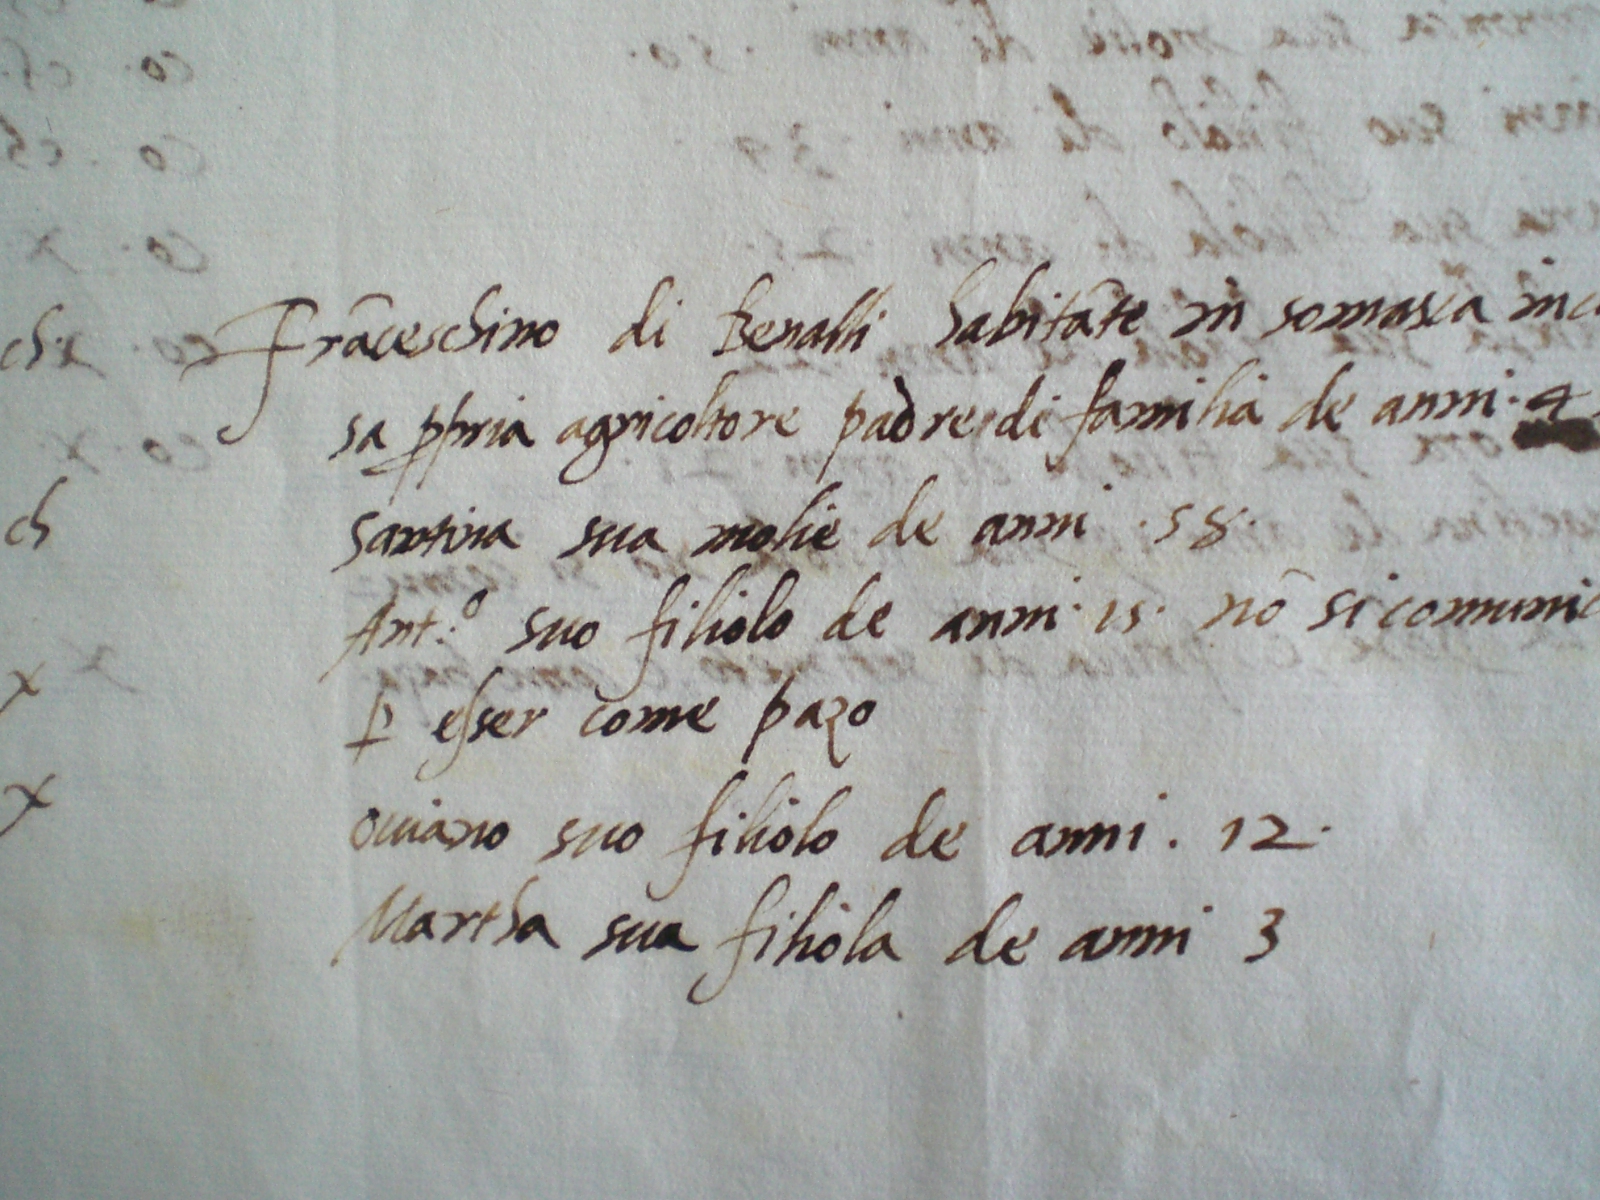 ch. x Frãceschino di Benalli habitãte in somasca in ca
sa ppria agricoltore padre di familia de anni · 4
ch Santina sua molie de anni · 58 ·
Ant.º suo filiolo de anni · 15 · nõ si comunic
x p esser come pazo
x Ouiano suo filiolo de anni . 12 ·
Martha sua filiola de anni 3